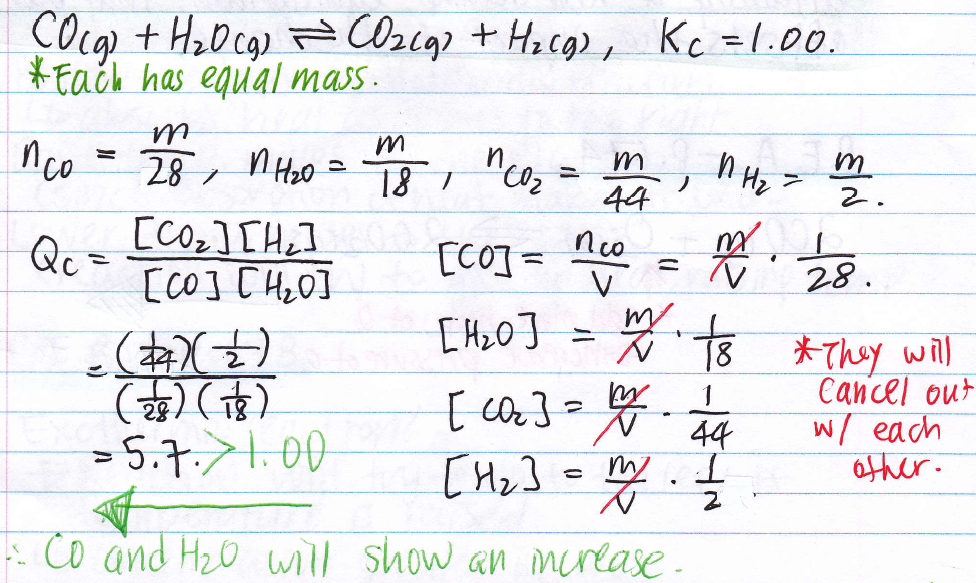 CO(g) + H₂O(g) ⇌ CO₂(g) + H₂(g), Kc = 1.00.
*Each has equal mass.
nCO = m/28, nH₂O = m/18, nCO₂ = m/44, nH₂ = m/2.
Qc = [CO₂][H₂]/[CO][H₂O] [CO] = nco/V = m/V · 1/28.
= (1/44)(1/2)/(1/28)(1/18) [H₂O] = m/V · 1/18
= 5.7. > 1.00 [CO₂] = m/V · 1/44
[H₂] = m/V · 1/2
*They will
cancel out
w/ each
other.
∴ CO and H₂O will show an increase.